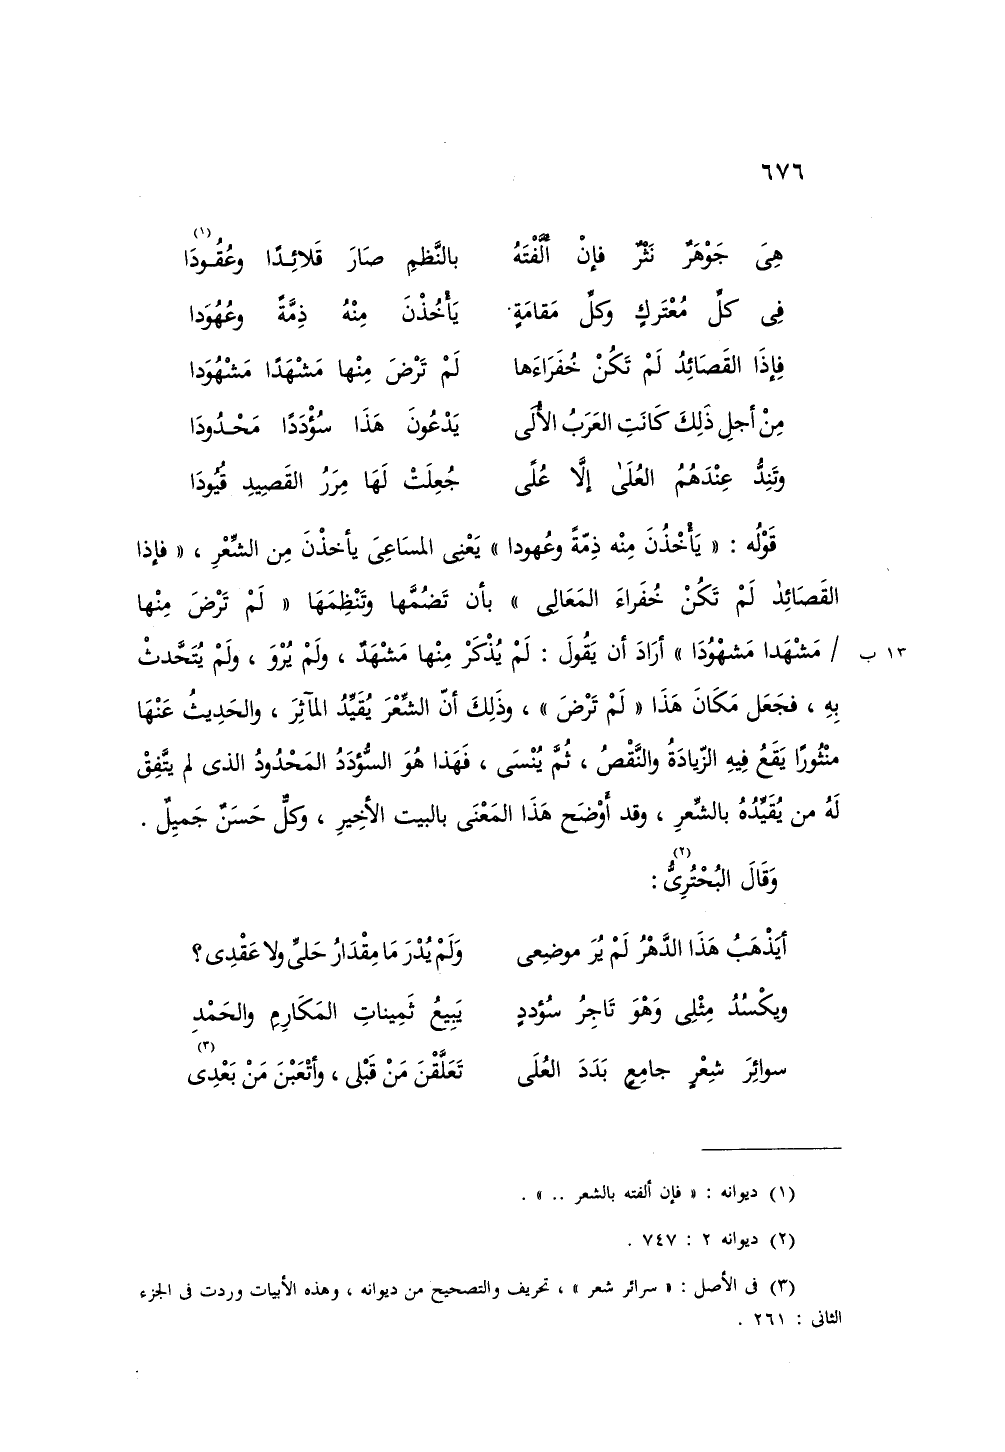 ٦٧٦
هِىَ جَوْهَرٌ نَثْرٌ فإنْ أَلَّفْتَهُ بالنَّظمِ صَارَ قَلائِدًا وعُقُودَا (١)
فِى كلِّ مُعْتَركٍ وكلِّ مَقامَةٍ يَأْخُذْنَ مِنْهُ ذِمَّةً وعُهُوَدا
فِإذَا القَصَائِدُ لَمْ تَكُنْ خُفَرَاءَها لَمْ تَرْضَ مِنْها مَشْهَدًا مَشْهُوَدا
مِنْ أجلِ ذَلِكَ كَانَتِ العَرَبُ الأُلَى يَدْعُونَ هَذَا سُؤْدَدًا مَحْدُودَا
وتَنِدُّ عِنْدَهُمُ العُلَىٰ إلَّا عُلًى جُعِلَتْ لَهَا مِرَرُ القَصِيدِ قُيُودَا
قَوْلُه : « يَأْخْذُنَ مِنْه ذِمّةً وعُهودا » يَعْنِى المسَاعِىَ يأخذْنَ مِن الشِّعْرِ ، « فإذا
القَصَائِدُ لَمْ تَكُنْ خُفَراءَ المَعَالِى » بأن تَضُمَّها وتَنْظِمَهَا « لَمْ تَرْضَ مِنْها
/ مَشْهَدا مَشهْوُدَا » أرَادَ أن يَقُولَ : لَمْ يُذْكَرْ مِنْها مَشْهَدٌ ، ولَمْ يُرْوَ ، ولَمْ يُتَحَّدثْ ١٣ ب
بِهِ ، فجَعَل مَكَانَ هَذَا « لَمْ تَرْضَ » ، وذَلِكَ أنّ الشِّعْرَ يُقَيِّدُ المآثِرَ ، والحَدِيثُ عَنْهَا
منْثُورًا يَقَعُ فِيهِ الزّيادَةُ والنَّقْصُ ، ثُمَّ يُنْسَى ، فَهَذا هُوَ السُّؤدَدُ المَحْدُودُ الذى لم يتَّفِقْ
لَهُ من يُقَيِّدُهُ بالشِّعرِ ، وقد أَوْضَح هَذَا المَعْنَى بالبيت الأخِيرِ ، وكلٌّ حَسَنٌ جَمِيلٌ .
وَقَالَ البُحْتُرِىُّ (٢) :
أيَذْهَبُ هَذَا الدَّهْرُ لَمْ يُرَ موضِعى وَلَمْ يُدْرَ مَا مِقْدَارُ حَلىِّ ولا عَقْدِى ؟
ويكْسُدُ مِثْلِى وَهْوَ تَاجِرُ سُؤددٍ يَبِيعُ ثَمِيناتِ المَكَارِمِ والحَمْدِ
سوائِرَ شِعْرٍ جامِعٍ بَدَدَ العُلَى تَعَلَّقْنَ مَنْ قَبْلى ، وأتْعَبْنَ مَنْ بَعْدِى (٣)
(١) ديوانه : « فإن ألفته بالشعر .. » .
(٢) ديوانه ٢ : ٧٤٧ .
(٣) فى الأصل : « سرائر شعر » ، تحريف والتصحيح من ديوانه ، وهذه الأبيات وردت فى الجزء
الثانى : ٢٦١ .